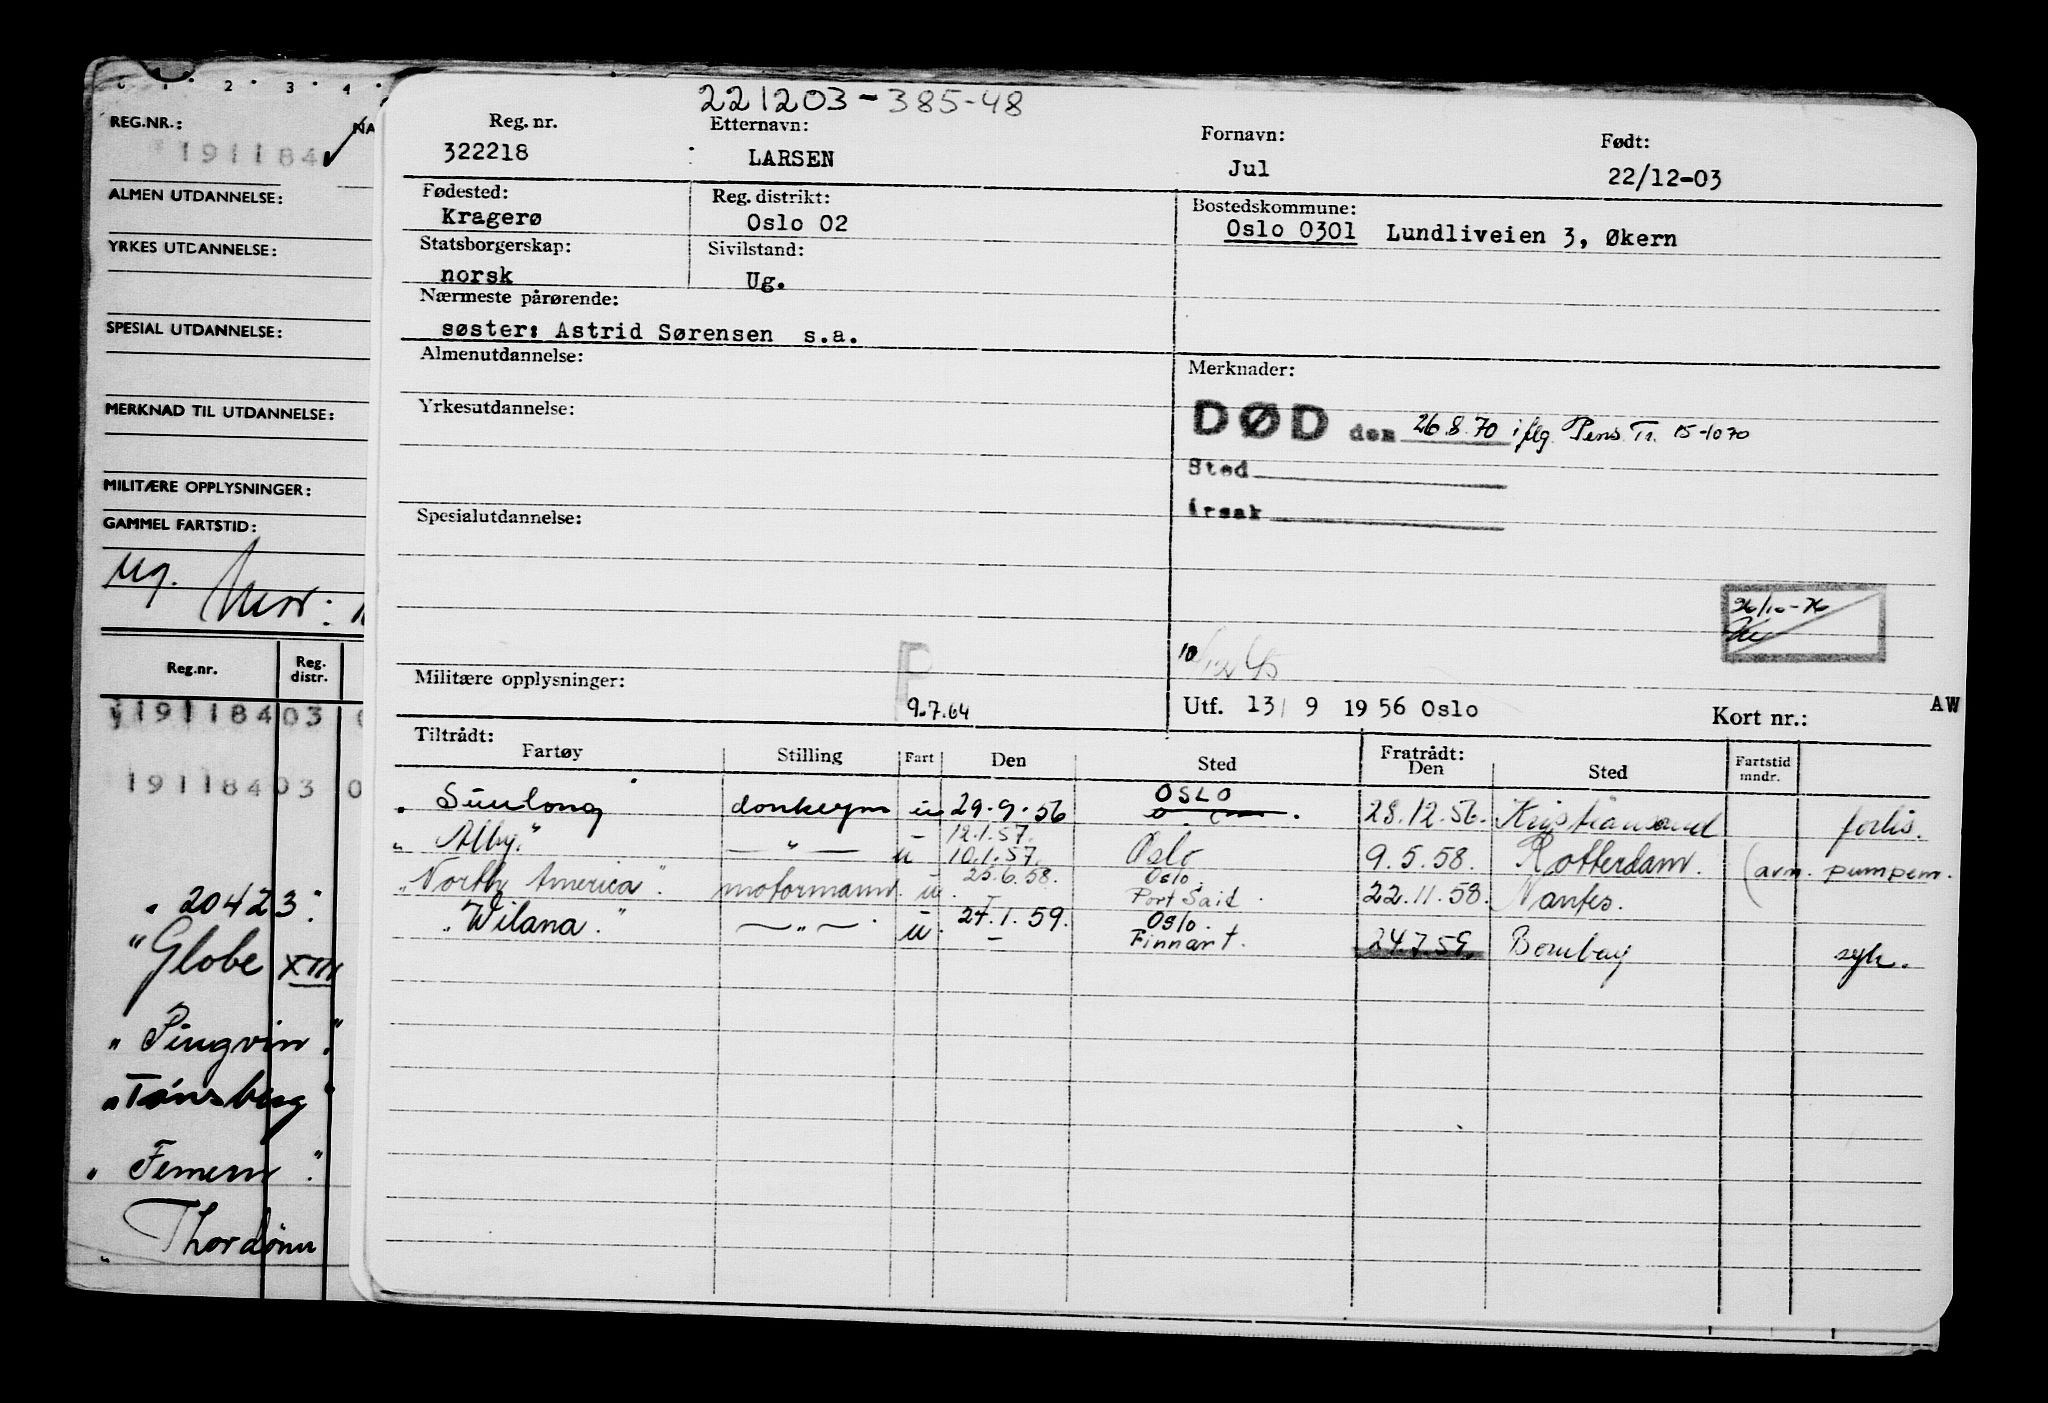 C 1 2 3 4
REG.NR.: NA
191184
ALMEN UTDANNELSE:
YRKES UTDANNELSE:
SPESIAL UTDANNELSE:
MERKNAD TIL UTDANNELSE:
MILITÆRE OPPLYSNINGER:
GAMMEL FARTSTID:
ug.
Reg.nr. Reg. distr.
19118403
19118403 0
" 20423"
"Globe XIII
"Pingvin"
"Tønsberg"
"Femern"
" Thordønn
221203-385-48
Reg. nr. Etternavn: Fornavn: Født:
322218 LARSEN Jul 22/12-03
Fødested: Reg. distrikt: Bostedskommune:
Kragerø Oslo 02 Oslo 0301 Lundliveien 3, Økern
Statsborgerskap: Sivilstand:
norsk Ug.
Nærmeste pårørende:
søster: Astrid Sørensen s.a.
Almenutdannelse: Merknader:
Yrkesutdannelse:
DØD den 26.8.70 iflg. Pens. Tr. 15-1070
Sted
årsak
Spesialutdannelse:
26/10-76
10
Militære opplysninger: P
9.7.64
Utf. 13/9 1956 Oslo Kort nr.: AW
Tiltrådt: Fratrådt:
Fartøy Stilling Fart Den Sted Den Sted Fartstid mndr.
donkeym u 29.9.56 OSLO 28.12.56. Kristiansand forlis.
"Alby" — " — u 12.1.57. 10.1.57. Oslo 9.5.58. Rotterdam. (avm. pumpem.
"North America". motormann. u 25.6.58. Oslo. Port Said 22.11.58. Nantes.
"Wilana" — " — u 27.1.59. Oslo. Finnart. 24.7.59. Bombay syk.